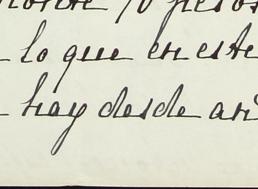 70 pesos
lo que en este
hay desde